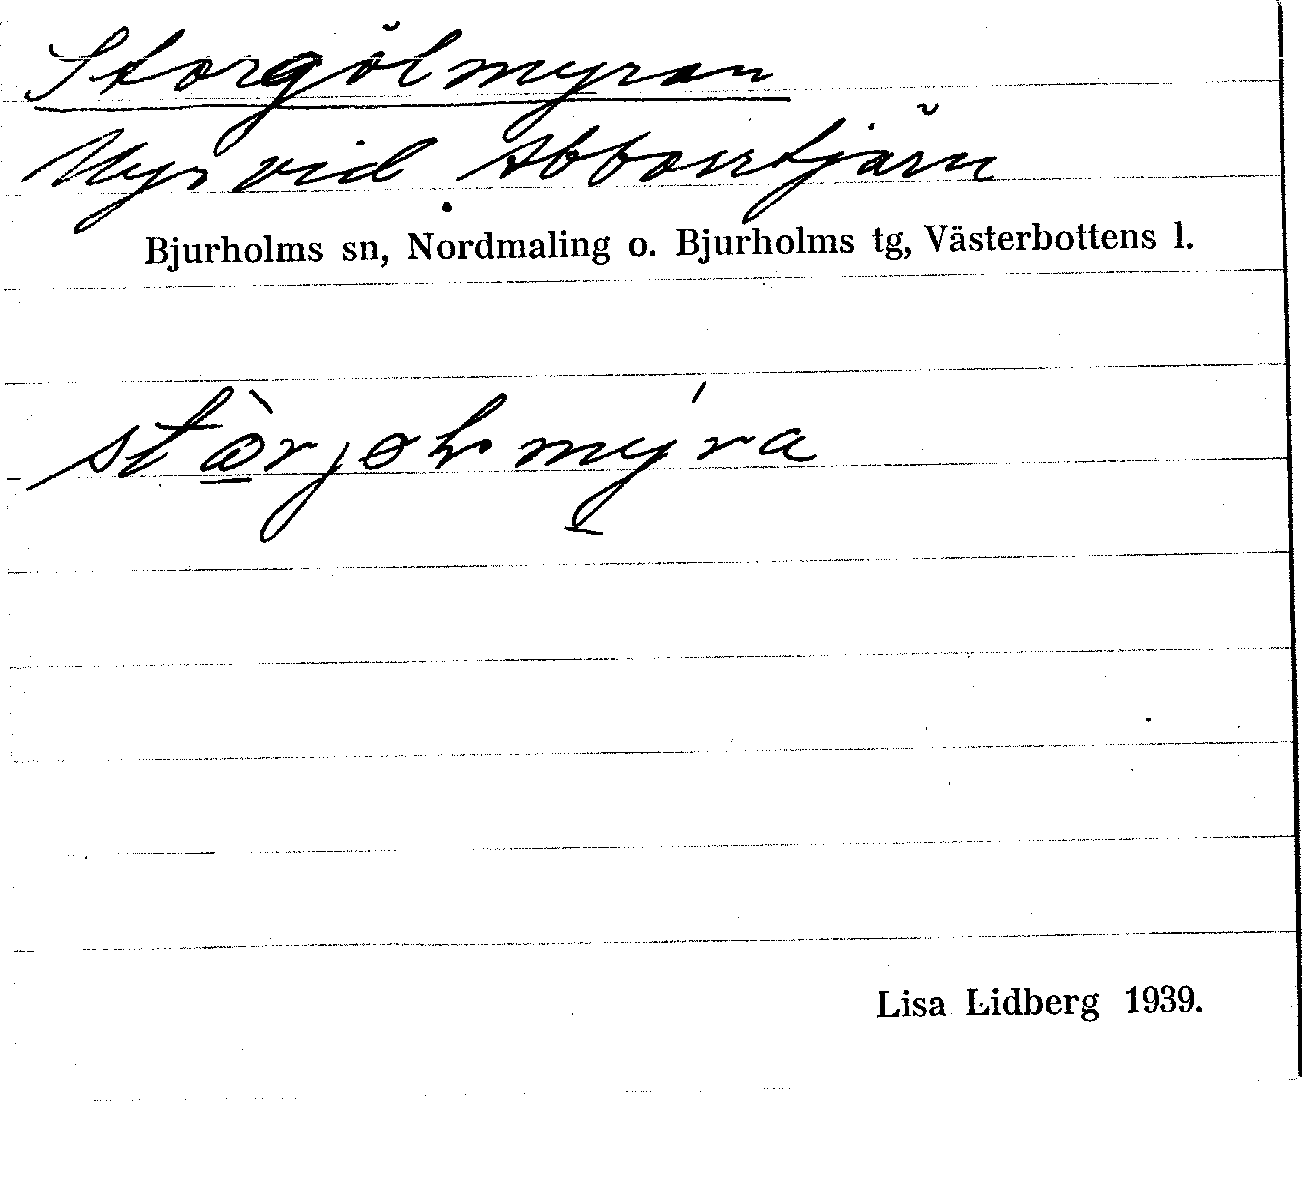 Storgölmyran
Myr vid Abborrtjärn
Bjurholms sn, Nordmaling o. Bjurholms tg, Västerbottens l.
Lisa Lidberg 1939.